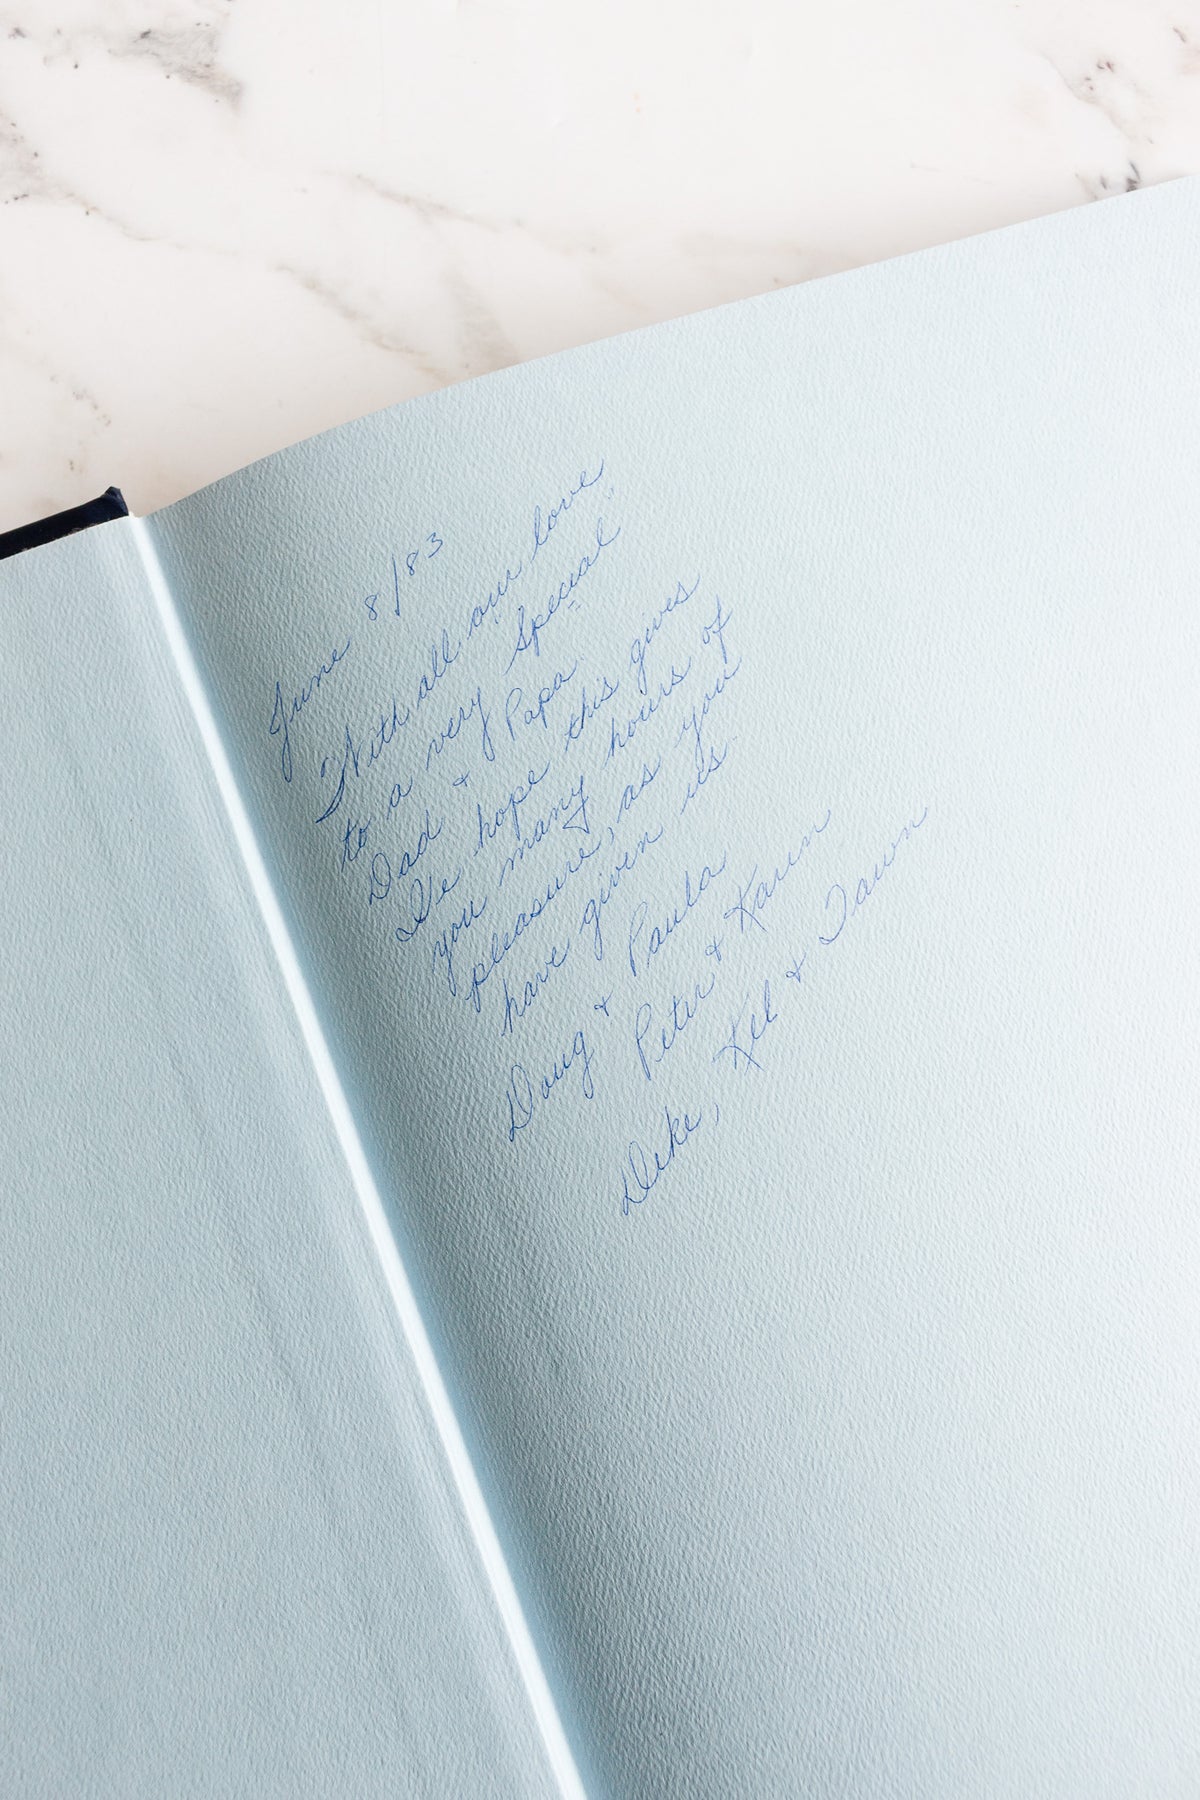 June 8/83
"With all our love
to a very Special"
Dad & Papa.
We hope this gives
you many hours of
pleasure, as you
have given us.
Doug & Paula
Peter & Karen
Deke, Kel & Dawn